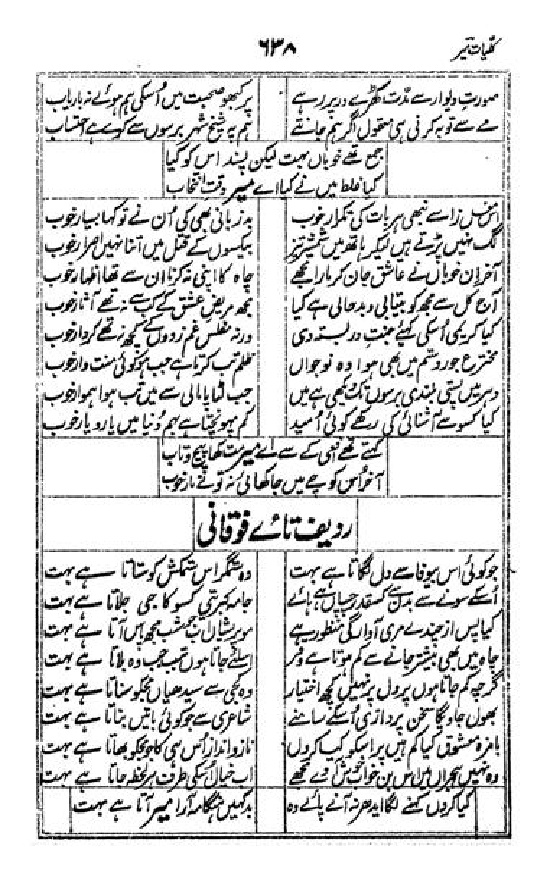 کلیات میر
۶۳۸
صورتِ دیوار سے مدت کھڑے در پر رہے
پر کبھو صحبت میں اُسکی ہم ہوئے نہ باریاب
مے سے توبہ کرنی ہی معقول اگر ہم جانتے
ہم پہ شیخِ شہر برسوں سے کرے ہے احتساب
جمع تھے خوباں بہت لیکن پسند اس کو کیا
کیا غلط میں نے کیا اے میر وقتِ انتخاب
اس مغل زا سے نتھی ہر بات کی تکرار خوب
بد زبانی بھی کی اُن نے تو کہا بسیار خوب
لگ نہیں پڑتے ہیں لیکر ہاتھ میں شمشیر تیز
بیکسوں کے قتل میں اتنا نہیں اصرار خوب
آخر ان خوباں نے عاشق جان کر مارا مجھے
چاہ کا اپنی نہ کرنا ان سے تھا اظہار خوب
آج کل سے مجھ کو بیتابی و بدحالی ہے کیا
مجھ مریضِ عشق کے کب سے نہ تھے آثار خوب
کیا کریمی اُسکی کہئے جنت دربستہ دی
ورنہ مفلس غم زدوں کے کچھ نہ تھے کردار خوب
مخترع جور و ستم میں بھی ہوا وہ نوجواں
ظلم تب کرتا ہے جب ہو کوئی منت دار خوب
دہر میں پستی بلندی برسوں تک دیکھی ہے میں
جب لٹا پامالی سے میں تب ہوا ہموار خوب
کیا کسو سے آشنائی کی رکھے کوئی اُمید
کم پہونچتا ہے بہم دُنیا میں یارو یار خوب
کہتے تھے افعی کے سے اے میر مت کھا پیچ و تاب
آخر اُس کوچے میں جا کھائی نہ تو نے مار خوب
ردیف تائے فوقانی
جو کوئی اس بیوفا سے دل لگاتا ہے بہت
وہ ستمگر اس ستمکش کو ستاتا ہے بہت
اُسکے سونے سے بدن سے کسقدر چسپاں ہے ہائے
جامہ کبریتی کسو کا جی جلاتا ہے بہت
کیا پس از چندے مری آوارگی منظور ہے
مو پریشاں اب جو شب مجھ پاس آتا ہے بہت
چاہ میں بھی بیشتر جانے سے کم ہوتا ہے وقر
اسلئے جاتا ہوں تب جب وہ بلاتا ہے بہت
گرچہ کم جاتا ہوں پر دل پر نہیں کچھ اختیار
وہ کجی سے سیدھیاں مجھکو سناتا ہے بہت
بھول جاوے گا سخن پردازی اُسکے سامنے
شاعری سے جو کوئی باتیں بناتا ہے بہت
بامزہ معشوق کیا کم ہیں پر اسکو کیا کروں
ناز و انداز اُس ہی کا جو مجھکو بھاتا ہے بہت
وہ نہیں ہجراں میں اس بن خواب خوش آوے مجھے
اب خیال اُسکی طرف ہر لحظہ جاتا ہے بہت
کیا کروں کہنے لگا ایدھر نہ آنے پائے وہ
بد کہیں ہنگامہ آرا میر آتا ہے بہت